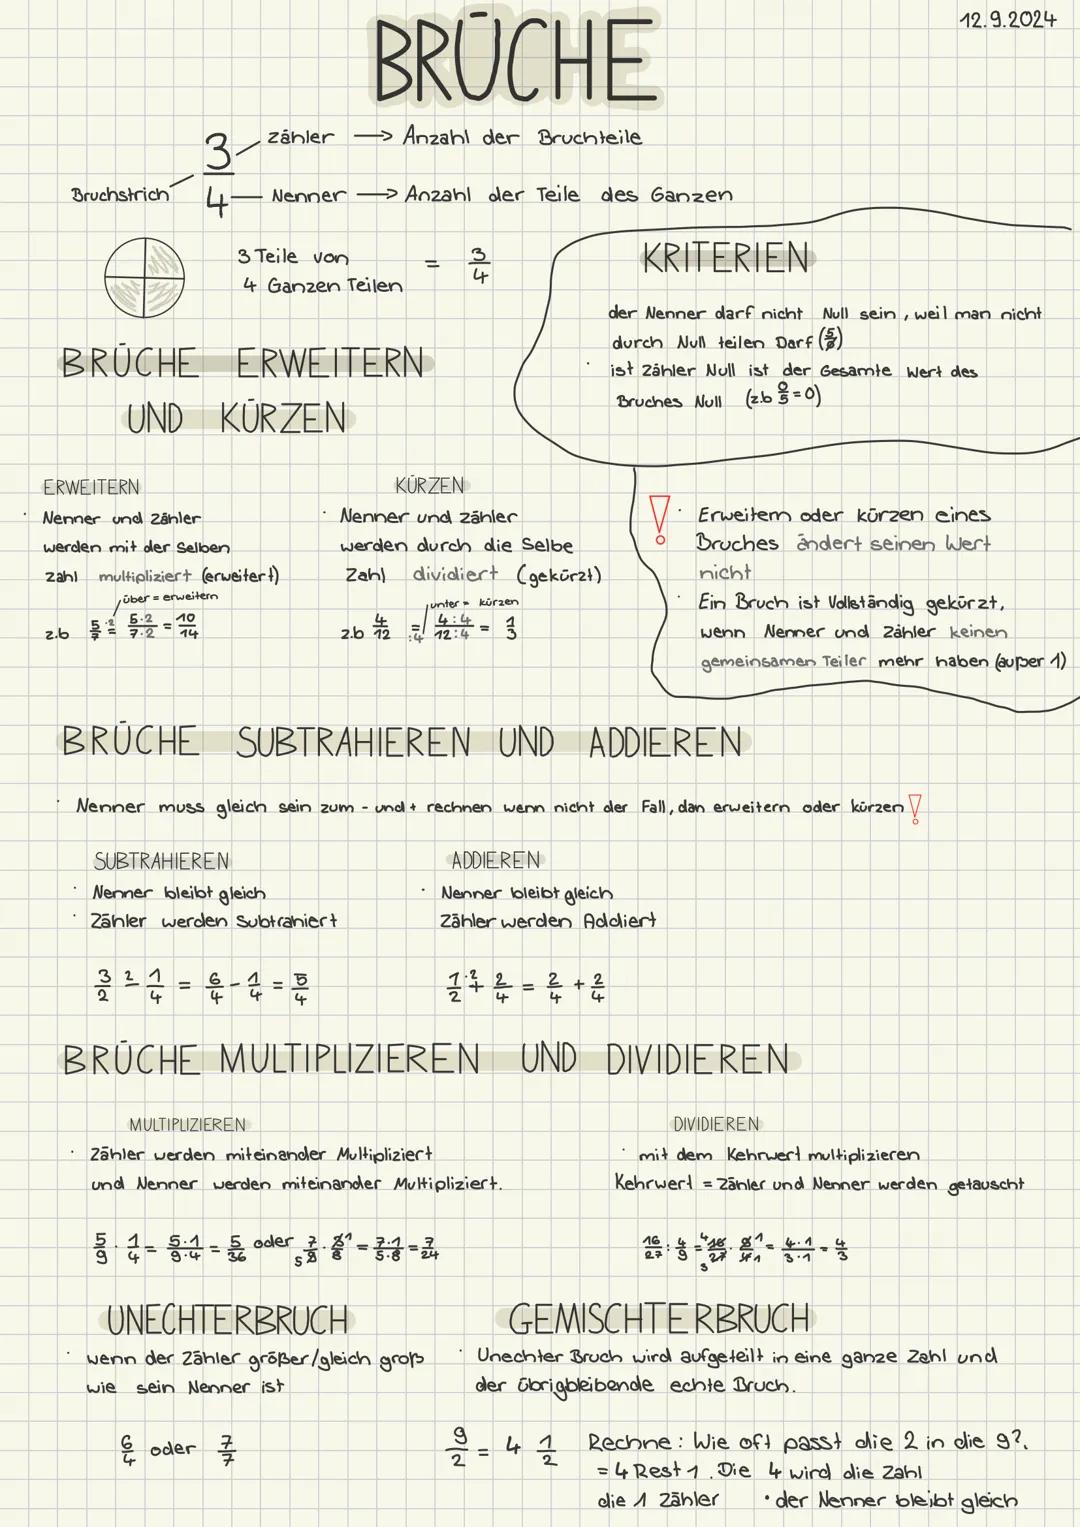 12.9.2024
BRÜCHE
3/4
Zähler → Anzahl der Bruchteile
Bruchstrich
Nenner → Anzahl der Teile des Ganzen
3 Teile von
4 Ganzen Teilen
= 3/4
KRITERIEN
der Nenner darf nicht Null sein, weil man nicht
durch Null teilen Darf (5/0)
· ist Zähler Null ist der Gesamte Wert des
Bruches Null (z.b 0/5 = 0)
BRÜCHE ERWEITERN
UND KÜRZEN
ERWEITERN
· Nenner und Zähler
werden mit der Selben
zahl multipliziert (erweitert)
über = erweitern
z.b 5/7 ·2= 5·2/7·2 = 10/14
KÜRZEN
· Nenner und Zähler
werden durch die Selbe
Zahl dividiert (gekürzt)
unter = kürzen
z.b 4/12 =:4 4:4/12:4 = 1/3
! · Erweitern oder kürzen eines
Bruches ändert seinen Wert
nicht
· Ein Bruch ist Vollständig gekürzt,
wenn Nenner und Zähler keinen
gemeinsamen Teiler mehr haben (außer 1)
BRÜCHE SUBTRAHIEREN UND ADDIEREN
· Nenner muss gleich sein zum - und + rechnen wenn nicht der Fall, dan erweitern oder kürzen !
SUBTRAHIEREN
· Nenner bleibt gleich
· Zähler werden Subtrahiert
3/2 2- 1/4 = 6/4 - 1/4 = 5/4
ADDIEREN
· Nenner bleibt gleich
Zähler werden Addiert
1/2 ·2+ 2/4 = 2/4 + 2/4
BRÜCHE MULTIPLIZIEREN UND DIVIDIEREN
MULTIPLIZIEREN
· Zähler werden miteinander Multipliziert
und Nenner werden miteinander Multipliziert.
5/9 · 1/4 = 5·1/9·4 = 5/36 oder = 7·1/5·8 = 7/24
DIVIDIEREN
· mit dem Kehrwert multiplizieren
Kehrwert = Zähler und Nenner werden getauscht
16/27 : 4/9 = 4·1/3·1 = 4/3
UNECHTERBRUCH
· wenn der Zähler größer/gleich groß
wie sein Nenner ist
6/4 oder 7/7
GEMISCHTERBRUCH
· Unechter Bruch wird aufgeteilt in eine ganze Zahl und
der übrigbleibende echte Bruch.
9/2 = 4 1/2
Rechne: Wie oft passt die 2 in die 9?.
= 4 Rest 1. Die 4 wird die Zahl
die 1 Zähler · der Nenner bleibt gleich